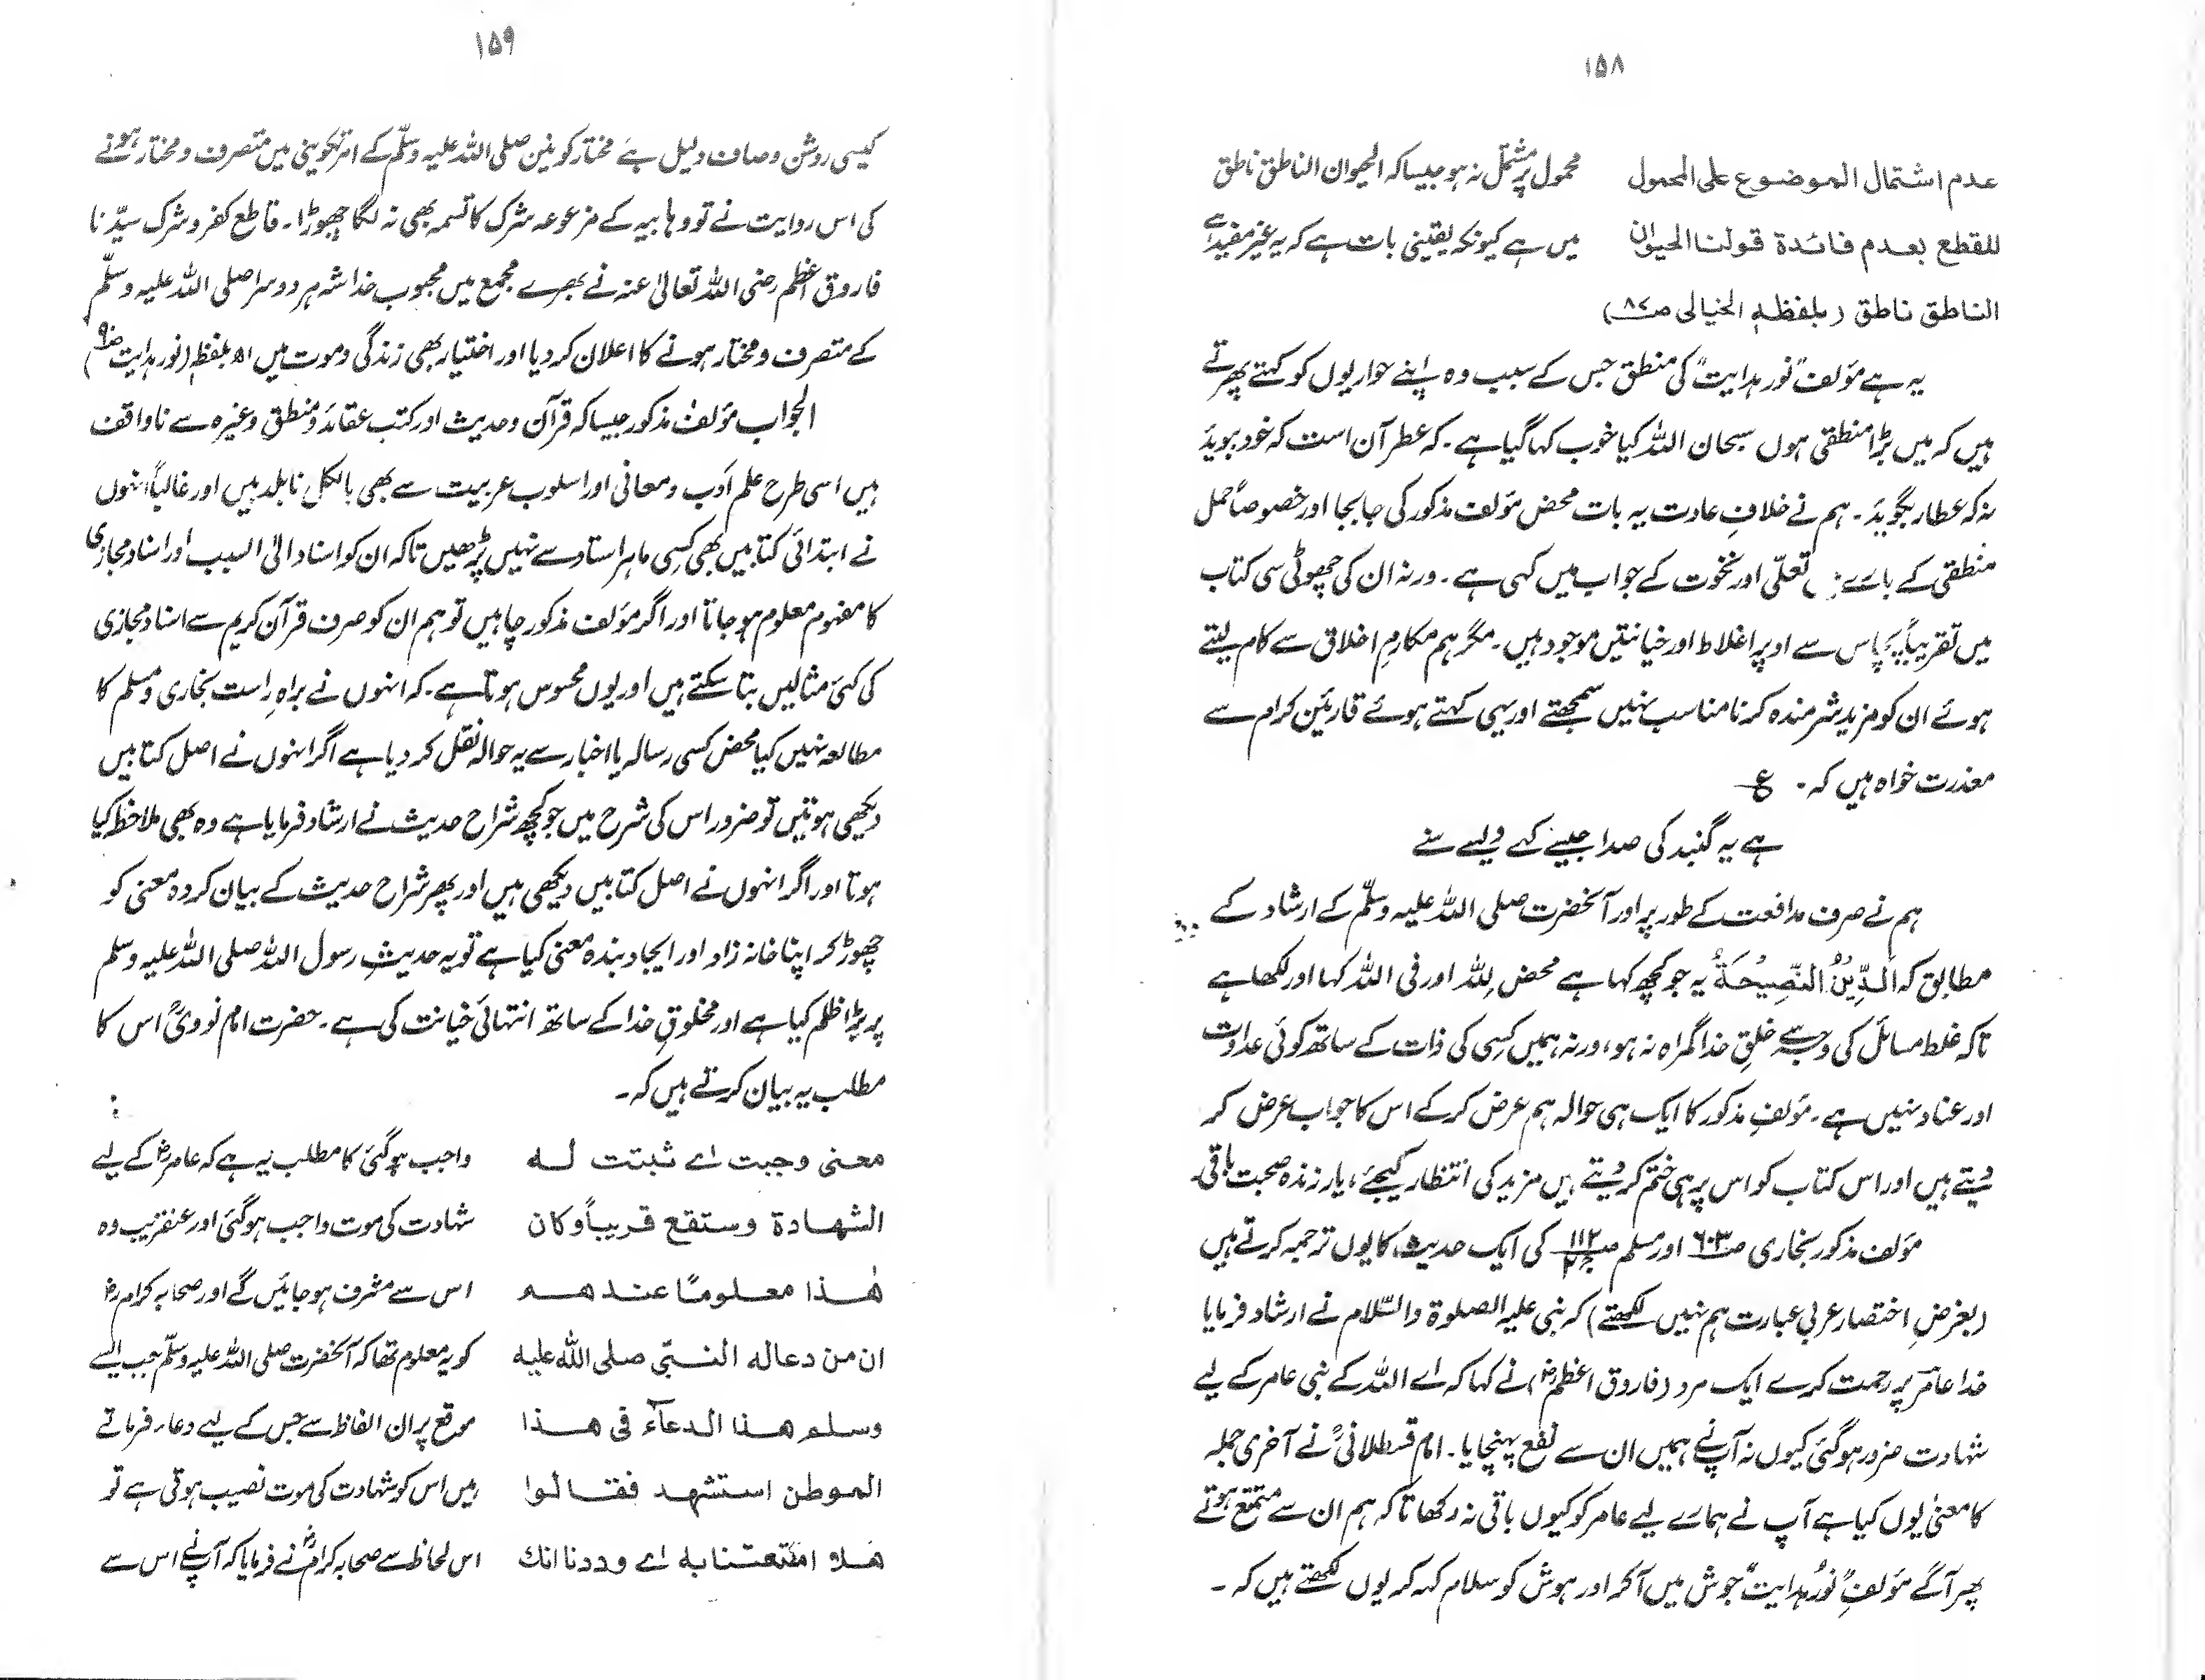 ۱۵۸
عدم اشتمال الموضوع على المحمول محمول پر مشتمل نہ ہو جیسا کہ الحیوان الناطق ناطق
للقطع بعدم فائدة قولنا الحيوان میں ہے کیونکہ یقینی بات ہے کہ یہ غیر مفید ہے
الناطق ناطق (بلفظہ الخیالی ص۸۷)
یہ ہے مؤلف "نور ہدایت" کی منطق جس کے سبب وہ اپنے حواریوں کو کہتے پھرتے
ہیں کہ میں بڑا منطقی ہوں سبحان اللہ کیا خوب کہا گیا ہے۔ کہ عطر آن است کہ خود ببوید
نہ کہ عطار بگوید۔ ہم نے خلافِ عادت یہ بات محض مؤلف مذکور کی جابجا اور خصوصاً حمل
منطقی کے بارے تعلّی اور نخوت کے جواب میں کہی ہے۔ ورنہ ان کی چھوٹی سی کتاب
میں تقریباً پچاس سے اوپر اغلاط اور خیانتیں موجود ہیں۔ مگر ہم مکارمِ اخلاق سے کام لیتے
ہوئے ان کو مزید شرمندہ کرنا مناسب نہیں سمجھتے اور یہی کہتے ہوئے قارئین کرام سے
معذرت خواہ ہیں کہ۔ ع
ہے یہ گنبد کی صدا جیسے کہے ویسے سنے
ہم نے صرف مدافعت کے طور پر اور آنحضرت صلی اللہ علیہ وسلّم کے ارشاد کے
مطابق کہ اَلدِّیْنُ النَّصِیْحَةُ یہ جو کچھ کہا ہے محض للہ اور فی اللہ کہا اور لکھا ہے
تاکہ غلط مسائل کی وجہ سے خلقِ خدا گمراہ نہ ہو، ورنہ ہمیں کسِی کی ذات کے ساتھ کوئی عداوت
اور عناد نہیں ہے۔ مؤلفِ مذکور کا ایک ہی حوالہ ہم عرض کر کے اس کا جواب عرض کر
دیتے ہیں اور اس کتاب کو اس پر ہی ختم کر دیتے ہیں مزید کی انتظار کیجئے، یار زندہ صحبت باقی۔
مؤلف مذکور بخاری ص۶۰۳ اور مسلم ص۱۱۲ کی ایک حدیث کا یوں ترجمہ کرتے ہیں
(بغرضِ اختصار عربی عبارت ہم نہیں لکھتے) کہ نبی علیہ الصلوة والسّلام نے ارشاد فرمایا
خدا عامر پر رحمت کرے ایک مرد (فاروق اعظمؓ) نے کہا کہ اے اللہ کے نبی عامر کے لیے
شہادت ضرور ہو گئی کیوں نہ آپ نے ہمیں ان سے نفع پہنچایا۔ امام قسطلانیؒ نے آخری جملہ
کا معنیٰ یوں کیا ہے آپ نے ہمارے لیے عامر کو کیوں باقی نہ رکھا تاکہ ہم ان سے متمتع ہوتے
پھر آگے مؤلفِ "نورِ ہدایت" جوش میں آکر اور ہوش کو سلام کہہ کر یوں لکھتے ہیں کہ۔
۱۵۹
کیسی روشن و صاف دلیل ہے مختارِ کونین صلی اللہ علیہ وسلّم کے امر تکوینی میں متصرف و مختار ہونے
کی اس روایت نے تو وہابیہ کے مزعومہ شرک کا تسمہ بھی نہ لگا چھوڑا۔ قاطع کفر و شرک سیّدنا
فاروق اعظم رضی اللہ تعالیٰ عنہ نے بھرے مجمع میں محبوب خدا شہ ہر دوسرا صلی اللہ علیہ وسلّم
کے متصرف و مختار ہونے کا اعلان کر دیا اور اختیار بھی زندگی و موت میں اھ بلفظہ (نور ہدایت ص۹)
الجواب مؤلف مذکور جیسا کہ قرآن و حدیث اور کتب عقائد و منطق وغیرہ سے ناواقف
ہیں اسی طرح علم ادب و معانی اور اسلوب عربیت سے بھی بالکل نابلد ہیں اور غالباً انہوں
نے ابتدائی کتابیں بھی کِسی ماہر استاد سے نہیں پڑھیں تاکہ ان کو اسناد الی السبب اور اسناد مجازی
کا مفہوم معلوم ہو جاتا اور اگر مؤلف مذکور چاہیں تو ہم ان کو صرف قرآن کریم سے اسناد مجازی
کی کئی مثالیں بتا سکتے ہیں اور یوں محسوس ہوتا ہے۔ کہ انہوں نے براہِ راست بخاری و مسلم کا
مطالعہ نہیں کیا محض کسی رسالہ یا اخبار سے یہ حوالہ نقل کر دیا ہے اگر انہوں نے اصل کتابیں
دیکھی ہوتیں تو ضرور اس کی شرح میں جو کچھ شراح حدیث نے ارشاد فرمایا ہے وہ بھی ملاحظہ کیا
ہوتا اور اگر انہوں نے اصل کتابیں دیکھی ہیں اور پھر شراح حدیث کے بیان کردہ معنی کو
چھوڑ کر اپنا خانہ زاد اور ایجاد بندہ معنی کیا ہے تو یہ حدیثِ رسول اللہ صلی اللہ علیہ وسلم
پر بڑا ظلم کیا ہے اور مخلوقِ خدا کے ساتھ انتہائی خیانت کی ہے۔ حضرت امام نوویؒ اس کا
مطلب یہ بیان کرتے ہیں کہ۔
معنی وجبت اے ثبتت له واجب ہو گئی کا مطلب یہ ہے کہ عامرؓ کے لیے
الشهادة وستقع قريباً وكان شہادت کی موت واجب ہو گئی اور عنقریب وہ
هٰذا معلومًا عندهم اس سے مشرف ہو جائیں گے اور صحابہ کرامؓ
ان من دعا له النبّی صلی اللہ علیه کو یہ معلوم تھا کہ آنحضرت صلی اللہ علیہ وسلّم جب ایسے
وسلم هذا الدعآء فی هذا موقع پر ان الفاظ سے جس کے لیے دعا فرماتے
الموطن استشهد فقالوا ہیں اس کو شہادت کی موت نصیب ہوتی ہے تو
هلا امتعتنا به اے وددنا انك اس لحاظ سے صحابہ کرامؓ نے فرمایا کہ آپ نے اس سے